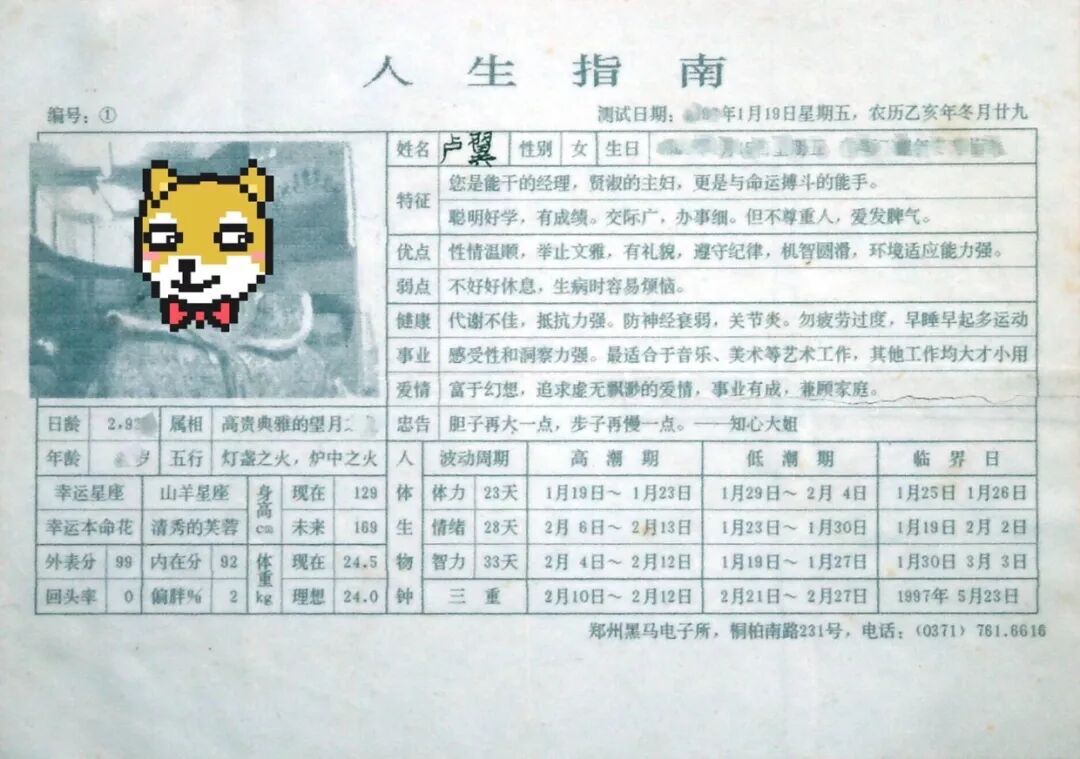 人生指南
编号：①
测试日期： 年1月19日星期五，农历乙亥年冬月廿九
姓名 卢翼 性别 女 生日
特征 您是能干的经理，贤淑的主妇，更是与命运搏斗的能手。
聪明好学，有成绩。交际广，办事细。但不尊重人，爱发脾气。
优点 性情温顺，举止文雅，有礼貌，遵守纪律，机智圆滑，环境适应能力强。
弱点 不好好休息，生病时容易烦恼。
健康 代谢不佳，抵抗力强。防神经衰弱，关节炎。勿疲劳过度，早睡早起多运动
事业 感受性和洞察力强。最适合于音乐、美术等艺术工作，其他工作均大才小用
爱情 富于幻想，追求虚无飘渺的爱情，事业有成，兼顾家庭。
忠告 胆子再大一点，步子再慢一点。——知心大姐
日龄 2,9 属相 高贵典雅的望月
年龄 岁 五行 灯盏之火，炉中之火
幸运星座 山羊星座 身高cm 现在 129
幸运本命花 清秀的芙蓉 未来 169
外表分 99 内在分 92 体重kg 现在 24.5
回头率 0 偏胖% 2 理想 24.0
人体生物钟 波动周期 高潮期 低潮期 临界日
体力 23天 1月19日～ 1月23日 1月29日～ 2月 4日 1月25日 1月26日
情绪 28天 2月 6日～ 2月13日 1月23日～ 1月30日 1月19日 2月 2日
智力 33天 2月 4日～ 2月12日 1月19日～ 1月27日 1月30日 3月 3日
三重 2月10日～ 2月12日 2月21日～ 2月27日 1997年 5月23日
郑州黑马电子所，桐柏南路231号，电话：(0371) 761.6616